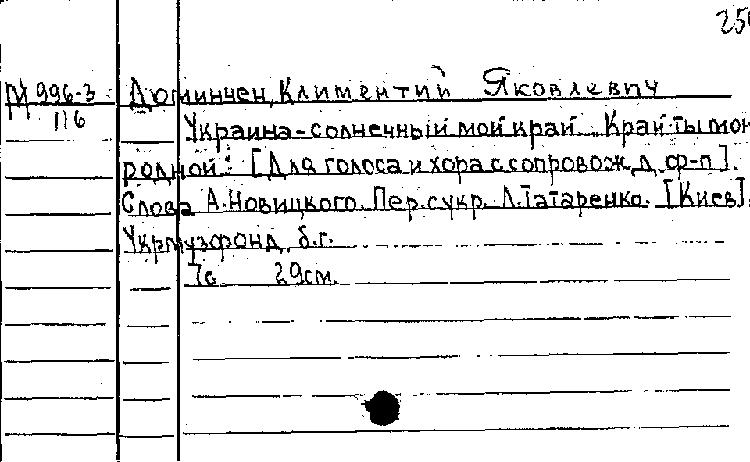 25
М 996-3 Дюминчен, Климентий Яковлевич
116
Украина-солнечный мой край. Край ты мой
родной: [Для голоса и хора с сопровожд. ф-п].
Слова А. Новицкого. Пер. с укр. Л. Татаренко. [Киев],
Укрмузфонд, б.г.
7с 29см.